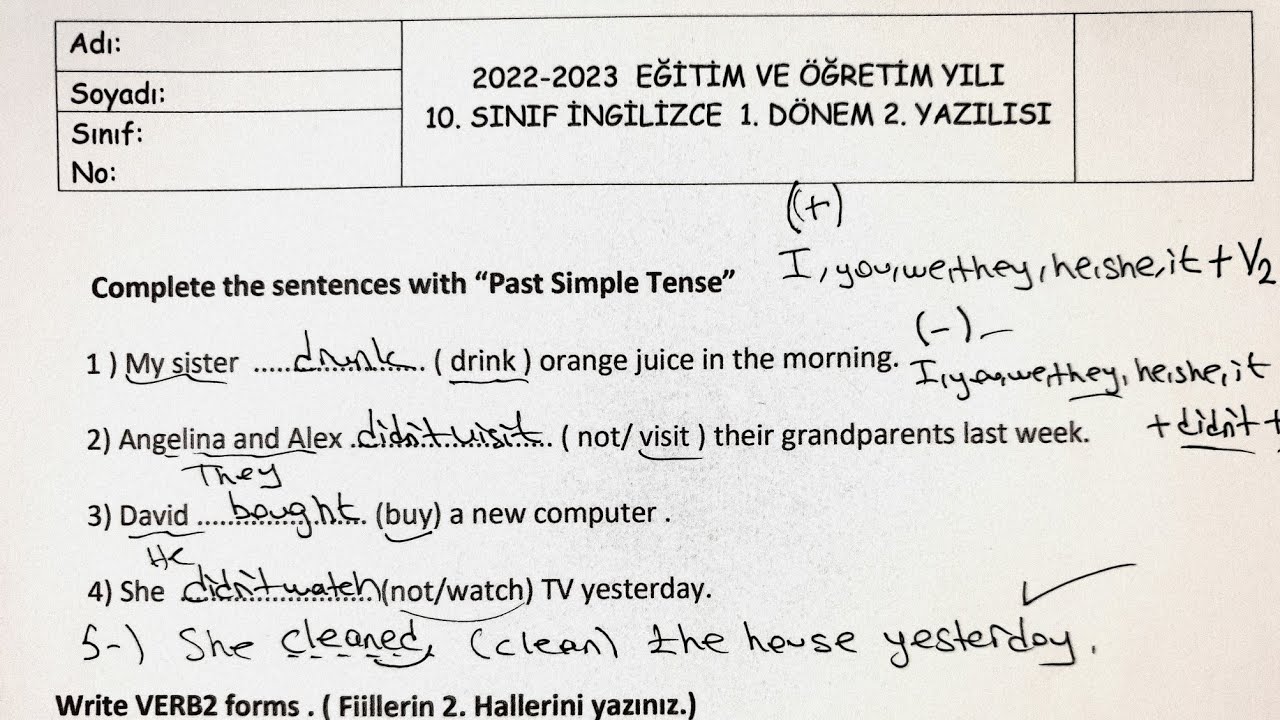 Adı:
Soyadı:
Sınıf:
No:
2022-2023 EĞİTİM VE ÖĞRETİM YILI
10. SINIF İNGİLİZCE 1. DÖNEM 2. YAZILISI
(+)
I, you, we, they, he, she, it + V2
Complete the sentences with “Past Simple Tense”
(-) –
1 ) My sister ..... drunk ..... ( drink ) orange juice in the morning.
I, you, we, they, he, she, it
+ didn't +
2) Angelina and Alex . didn't visit .. ( not/ visit ) their grandparents last week.
They
3) David ..... bought ..... (buy) a new computer .
He
4) She didn't watch (not/watch) TV yesterday.
5-) She cleaned (clean) the house yesterday.
Write VERB2 forms . ( Fiillerin 2. Hallerini yazınız.)